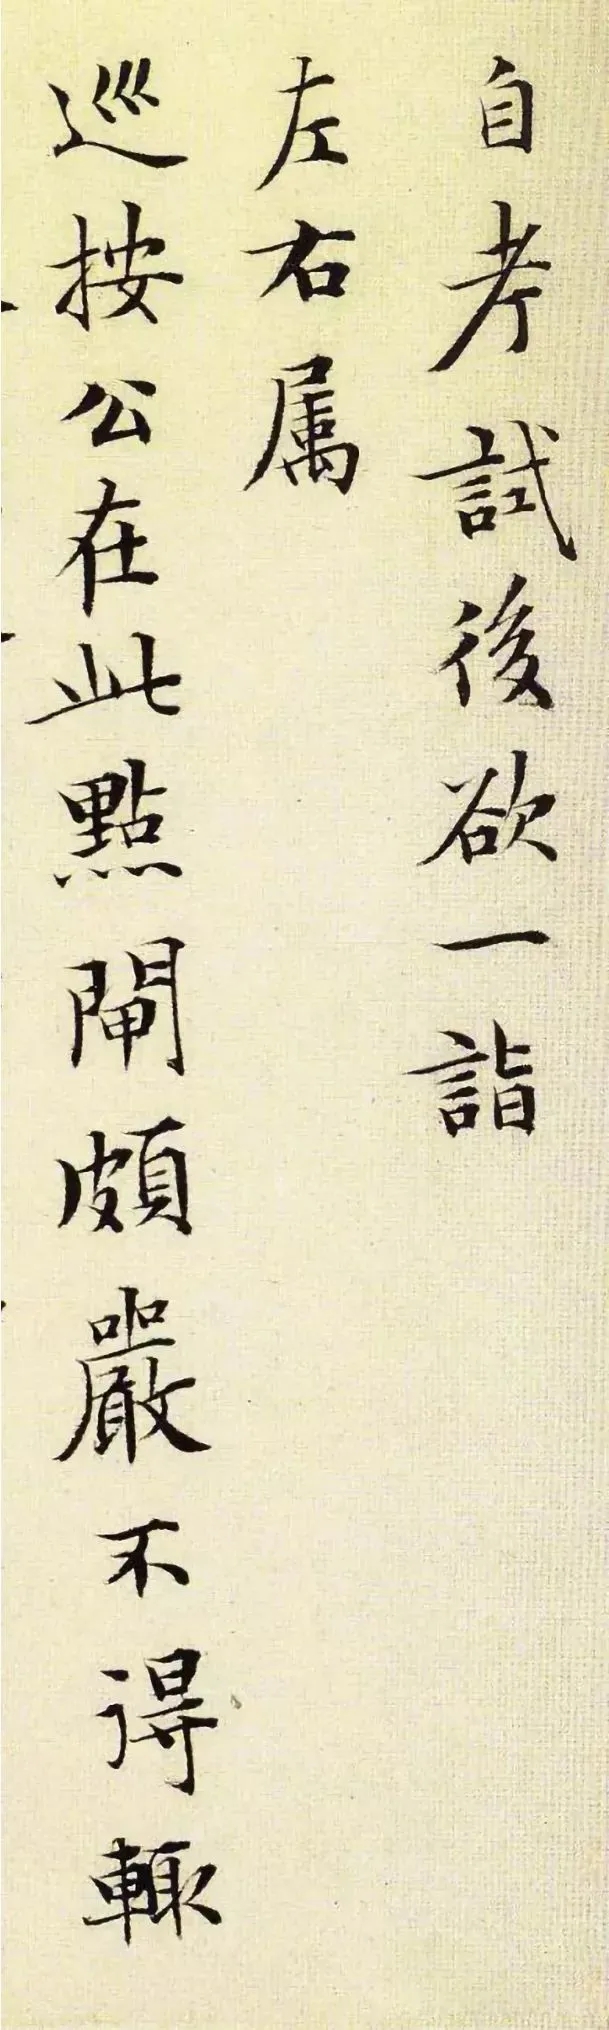 自考試後欲一詣
左右属
巡按公在此點閘頗嚴不得輙